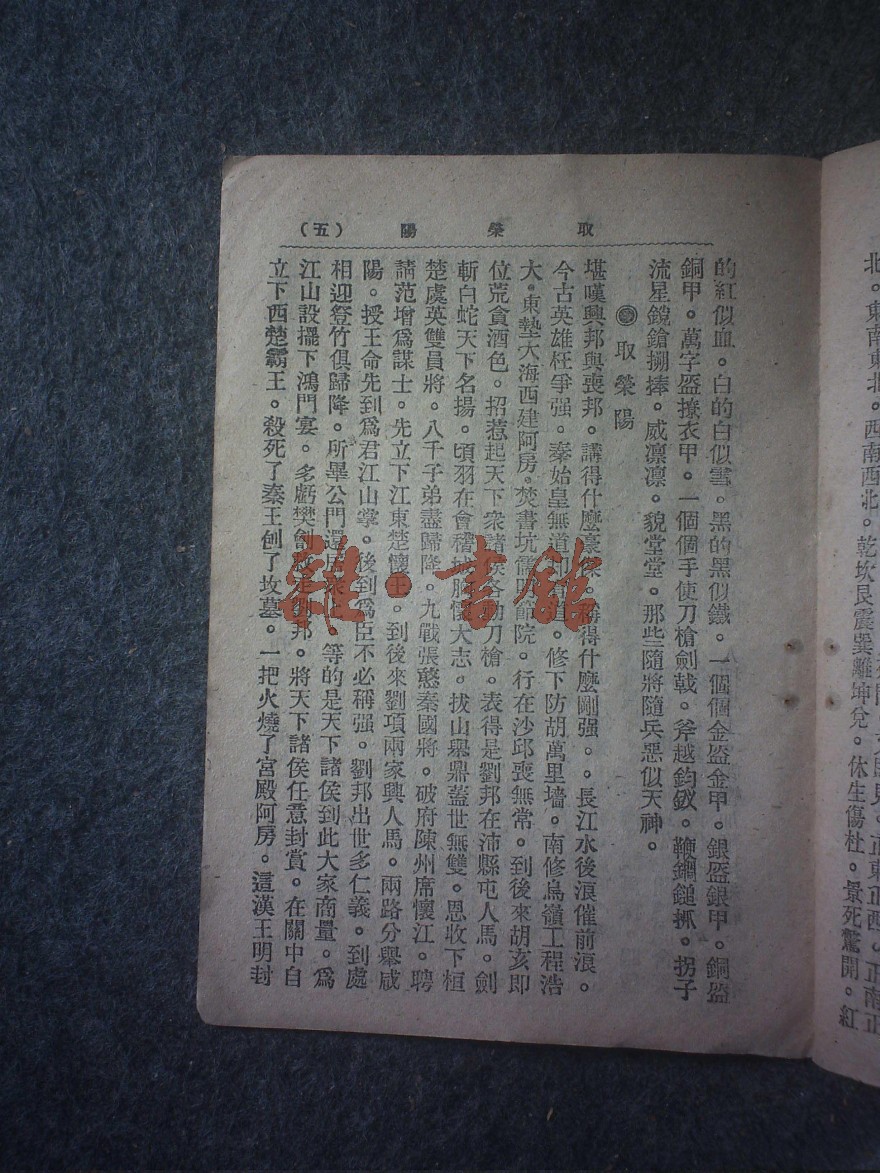 北。東南東北。西南西北。乾坎艮震巽離坤兌。休生傷杜。景死驚開。紅
取滎陽（五）
的紅似血。白的白似雪。黑的黑似鐵。一個個金盔金甲。銀盔銀甲。銅盔
銅甲。萬字盔撩衣甲。一個個手使刀槍劍戟。斧越鈞釵。鞭鐗鎚抓。拐子
流星钂鎗捌捧。威凛凛。貌堂堂。那些隨將隨兵惡似天神。
取滎陽
堪嘆興邦與喪邦。講得什麼豪傑。稱得什麼剛强。。長江水後浪催前浪。
今古英雄枉爭强。秦始皇無道。修下防胡萬里墻。南修烏嶺工程浩
大。東墊大海西建阿房。焚書坑儒節院。行在沙邱喪無常。到後來胡亥即
位荒貪酒色。招惹起天下衆諸侯各動刀槍。表得是劉邦在沛縣屯人馬。劍
斬白蛇天下名揚。項羽在會稽城胸懷大志。拔山舉鼎蓋世無雙。恩收下桓
楚虞英雙員將。八千子弟盡歸降。九戰張憨秦國將。破府陳州席懷江。聘
請范增爲謀士。先立下江東楚懷王。到後來劉項兩家興人馬。兩路分舉咸
陽。授王命先到爲君江山掌。後到爲臣不必稱强。劉邦出世多仁義。到處
相迎簦竹俱歸降。所畢公門還居。等的是天下諸侯到此大家商量。爲
江山設擺下鴻門宴。多虧樊劉邦。將天下諸侯任意封賞。在關中自
立下西楚霸王。殺死了秦王刨了坟墓。一把火燒了宮殿阿房。這漢王明封
雜·書館